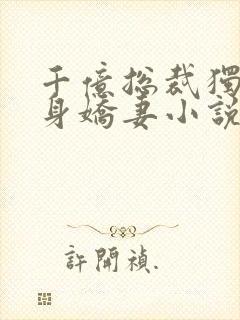 千億総裁獨
身嬌妻小説
許開禎.